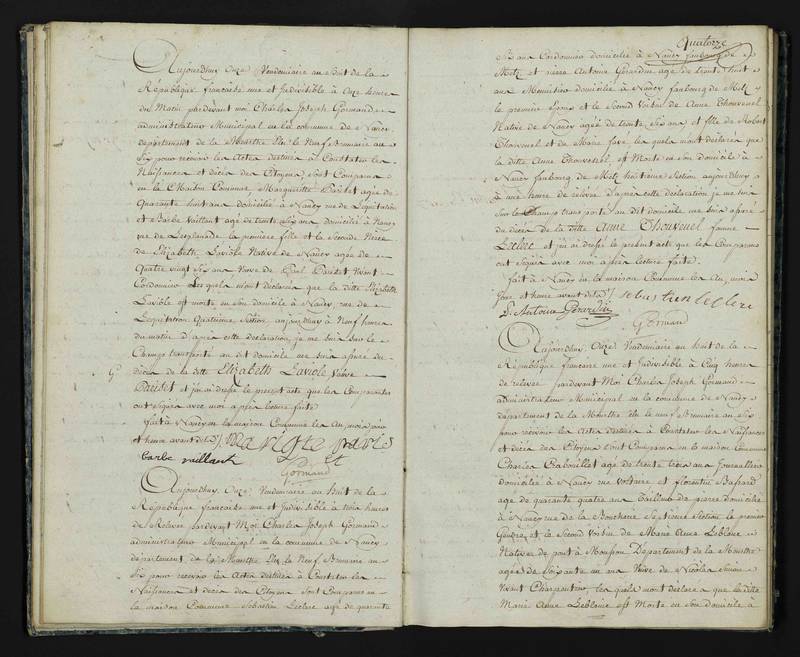 Aujourdhuy Onze Vendemiaire an huit de la
République francaise une et Indivisible à Onze heures
du Matin pardevant moi Charles Joseph Gormand
administrateur Municipal en la commune de Nancy
departement de la Meurthe Elu le Neuf Brumaire an
Six pour recevoir les Actes destinés à Constater les
Naissances et décès des Citoyens, sont Comparus
en la Maison Commune Marguerite agée de
Quarante huit ans domiciliée à Nancy rue de Lequitation
et Barbe Vaillant agé de trente six ans domiciliée à Nancy
rue de Lesplanade la première fille et la Seconde Niece
de Elizabeth Laviole Native de Nancy agée de
Quatre vingt Six ans Veuve de vivant
Cordonnier Lesquels mont déclarés que la ditte Elizabeth
Laviole est morte en son domicile à Nancy rue de
Lequitation Quatrieme Section aujourdhuy à Neuf heures
du matin d'apres cette déclaration, je me suis sur le
Champ transporté au dit domicile me suis assuré du
G décès de la ditte Elizabeth Laviole Veuve
et j'ai dressé le present acte que les Comparantes
ont signées avec moi apres lecture faite
fait à Nancy en la maison Commune les an, mois jour
et heure avant ditte
barbe vaillant
Gormand
Aujourdhuy Onze Vendemiaire an huit de la
République francaise une et Indivisible à trois heures
de Relevée pardevant Moi Charles Joseph Gormand
administrateur Municipal en la commune de Nancy
departement de la Meurthe Elu le Neuf Brumaire an
Six pour recevoir les Actes destinés à Constater les
Naissances et décès des Citoyens sont Comparus en
la maison Commune Sebastien Leclerc agé de quarante
Quatorze
Six ans Cordonnier domicilié à Nancy faubourg de
Metz et pierre Antoine Gerardin agé de trente huit
ans Menuisier domicilié à Nancy faubourg de Metz
le premier Epoux et le Second Voisin de Anne Thouvenel
Native de Nancy agée de trente Six ans et fille de Robert
Thouvenel et de Marie lesquels mont déclarés que
la ditte Anne Thouvenel est Morte en son domicile à
Nancy faubourg de Metz huitieme Section aujourdhuy
à une heure de relevée d'apres cette declaration je me suis
Sur le Champ transporté au dit domicile me suis assuré
du décès de la ditte Anne Thouvenel femme
Leclerc et j'ai dressé le présent acte que les Comparans
ont Signés avec moi apres lecture faite.
fait à Nancy en la maison Commune les An, mois
Jour et heure avant dits sebastien leclerc
P. Antoine Gerardin
Gormand
Aujourdhuy Onze Vendemiaire an huit de la
République francaise une et Indivisible à Cinq heures
de relevée pardevant Moi Charles Joseph Gormand
administrateur Municipal en la commune de Nancy
departement de la Meurthe Elu le neuf Brumaire an Six
pour recevoir les Actes destinés à Constater les Naissances
et décès des Citoyens sont Comparus en la maison Commune
Charles agé de trente trois ans Journallier
domicilié à Nancy rue Voltaire et florentin
agé de quarante quatre ans Tailleur de pierre domicilié
à Nancy rue de la Boucherie Septieme Section le premier
Gendre et le Second Voisin de Marie Anne Leblanc
Native de pont à Mousson Departement de la Meurthe
agée de Soixante un ans Veuve de Nicolas
Vivant Charpentier, lesquels mont déclaré que la ditte
Marie Anne Leblanc est Morte en son domicile à